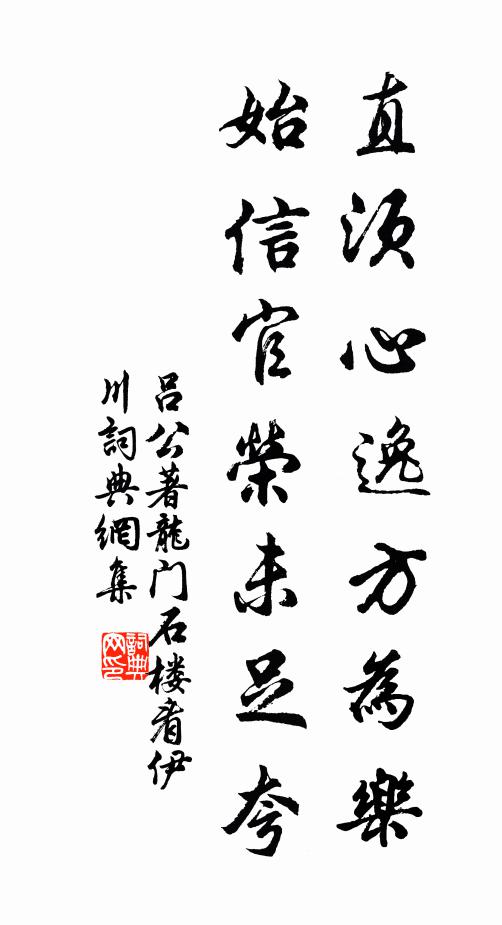 直須心逸方為樂
始信官榮未足夸
呂公著龍门石楼看伊
川詞典網集
詞典网印